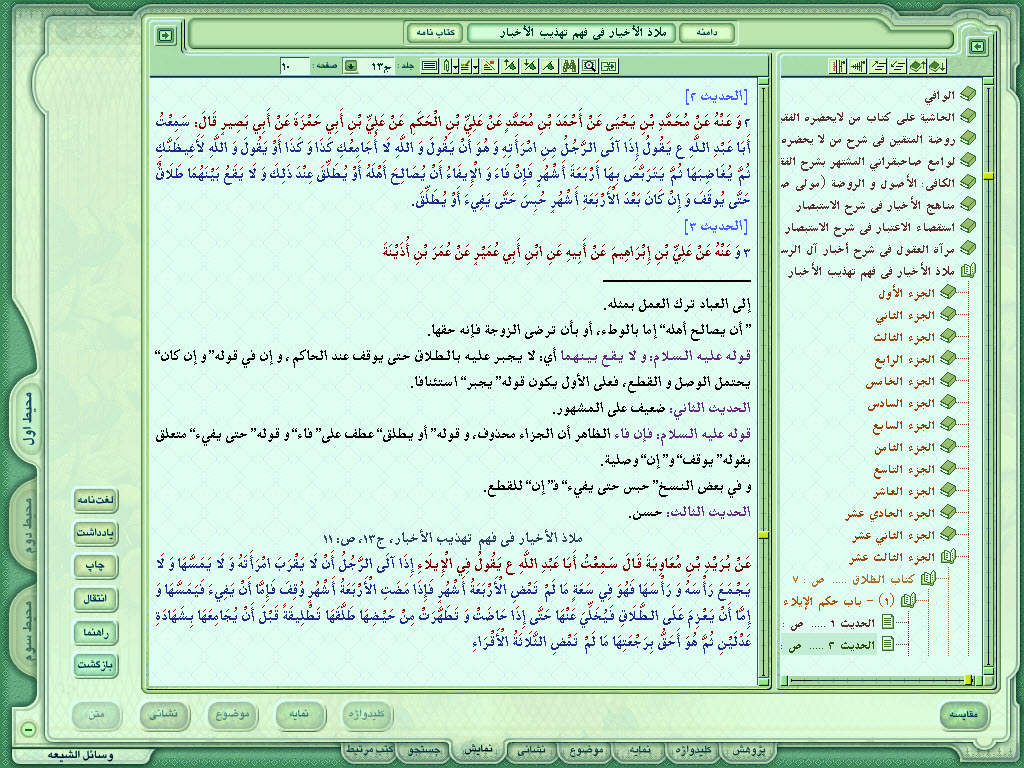 دامنه
ملاذ الأخيار فى فهم تهذيب الأخبار
کتاب نامه
جلد : ج١٣ صفحه : ١٠
[الحديث ٢]
٢ وَ عَنْهُ عَنْ مُحَمَّدِ بْنِ يَحْيَى عَنْ أَحْمَدَ بْنِ مُحَمَّدٍ عَنْ عَلِيِّ بْنِ الْحَكَمِ عَنْ عَلِيِّ بْنِ أَبِي حَمْزَةَ عَنْ أَبِي بَصِيرٍ قَالَ: سَمِعْتُ
أَبَا عَبْدِ اللَّهِ ع يَقُولُ إِذَا آلَى الرَّجُلُ مِنِ امْرَأَتِهِ وَ هُوَ أَنْ يَقُولَ وَ اللَّهِ لَا أُجَامِعُكِ كَذَا وَ كَذَا أَوْ يَقُولَ وَ اللَّهِ لَأَغِيظَنَّكِ
ثُمَّ يُغَاضِبَهَا ثُمَّ يَتَرَبَّصُ بِهَا أَرْبَعَةَ أَشْهُرٍ فَإِنْ فَاءَ وَ الْإِيفَاءُ أَنْ يُصَالِحَ أَهْلَهُ أَوْ يُطَلِّقَ عِنْدَ ذَلِكَ وَ لَا يَقَعُ بَيْنَهُمَا طَلَاقٌ
حَتَّى يُوقَفَ وَ إِنْ كَانَ بَعْدَ الْأَرْبَعَةِ أَشْهُرٍ حُبِسَ حَتَّى يَفِيءَ أَوْ يُطَلِّقَ.
[الحديث ٣]
٣ وَ عَنْهُ عَنْ عَلِيِّ بْنِ إِبْرَاهِيمَ عَنْ أَبِيهِ عَنِ ابْنِ أَبِي عُمَيْرٍ عَنْ عُمَرَ بْنِ أُذَيْنَةَ
إلى العباد ترك العمل بمثله.
" أن يصالح أهله" إما بالوطء، أو بأن ترضى الزوجة فإنه حقها.
قوله عليه السلام: و لا يقع بينهما أي: لا يجبر عليه بالطلاق حتى يوقف عند الحاكم ، و إن في قوله" و إن كان"
يحتمل الوصل و القطع، فعلى الأول يكون قوله" يجبر" استئنافا.
الحديث الثاني: ضعيف على المشهور.
قوله عليه السلام: فإن فاء الظاهر أن الجزاء محذوف، و قوله" أو يطلق" عطف على" فاء" و قوله" حتى يفيء" متعلق
بقوله" يوقف" و" إن" وصلية.
و في بعض النسخ" حبس حتى يفيء" ف" إن" للقطع.
الحديث الثالث: حسن.
ملاذ الأخيار فى فهم تهذيب الأخبار، ج١٣، ص: ١١
عَنْ بُرَيْدِ بْنِ مُعَاوِيَةَ قَالَ سَمِعْتُ أَبَا عَبْدِ اللَّهِ ع يَقُولُ فِي الْإِيلَاءِ إِذَا آلَى الرَّجُلُ أَنْ لَا يَقْرَبَ امْرَأَتَهُ وَ لَا يَمَسَّهَا وَ لَا
يَجْمَعَ رَأْسَهُ وَ رَأْسَهَا فَهُوَ فِي سَعَةٍ مَا لَمْ تَمْضِ الْأَرْبَعَةُ أَشْهُرٍ فَإِذَا مَضَتِ الْأَرْبَعَةُ أَشْهُرٍ وُقِفَ فَإِمَّا أَنْ يَفِيءَ فَيَمَسَّهَا وَ
إِمَّا أَنْ يَعْزِمَ عَلَى الطَّلَاقِ فَيُخَلِّيَ عَنْهَا حَتَّى إِذَا حَاضَتْ وَ تَطَهَّرَتْ مِنْ حَيْضِهَا طَلَّقَهَا تَطْلِيقَةً قَبْلَ أَنْ يُجَامِعَهَا بِشَهَادَةِ
عَدْلَيْنِ ثُمَّ هُوَ أَحَقُّ بِرَجْعَتِهَا مَا لَمْ تَمْضِ الثَّلَاثَةُ الْأَقْرَاءِ
الوافي
الحاشية على كتاب من لايحضره الفقي
روضة المتقين فى شرح من لا يحضره
لوامع صاحبقرانى المشتهر بشرح الفق
الكافي: الأصول و الروضة (مولى ص
مناهج الأخيار فى شرح الاستبصار
استقصاء الاعتبار فى شرح الاستبصار
مرآة العقول فى شرح أخبار آل الرس
ملاذ الأخيار فى فهم تهذيب الأخبار
الجزء الأول
الجزء الثاني
الجزء الثالث
الجزء الرابع
الجزء الخامس
الجزء السادس
الجزء السابع
الجزء الثامن
الجزء التاسع
الجزء العاشر
الجزء الحادي عشر
الجزء الثاني عشر
الجزء الثالث عشر
كتاب الطلاق ..... ص : ٧
(١) - باب حكم الإيلاء
الحديث ١ ..... ص :
الحديث ٢ ..... ص :
محیط اول
محیط دوم
محیط سوم
لغت‌نامه
یادداشت
چاپ
انتقال
راهنما
بازگشت
مقایسه
کلیدواژه
نمایه
موضوع
نشانی
متن
پژوهش
کلیدواژه
نمایه
موضوع
نشانی
نمایش
جستجو
کتب مرتبط
وسائل الشیعه